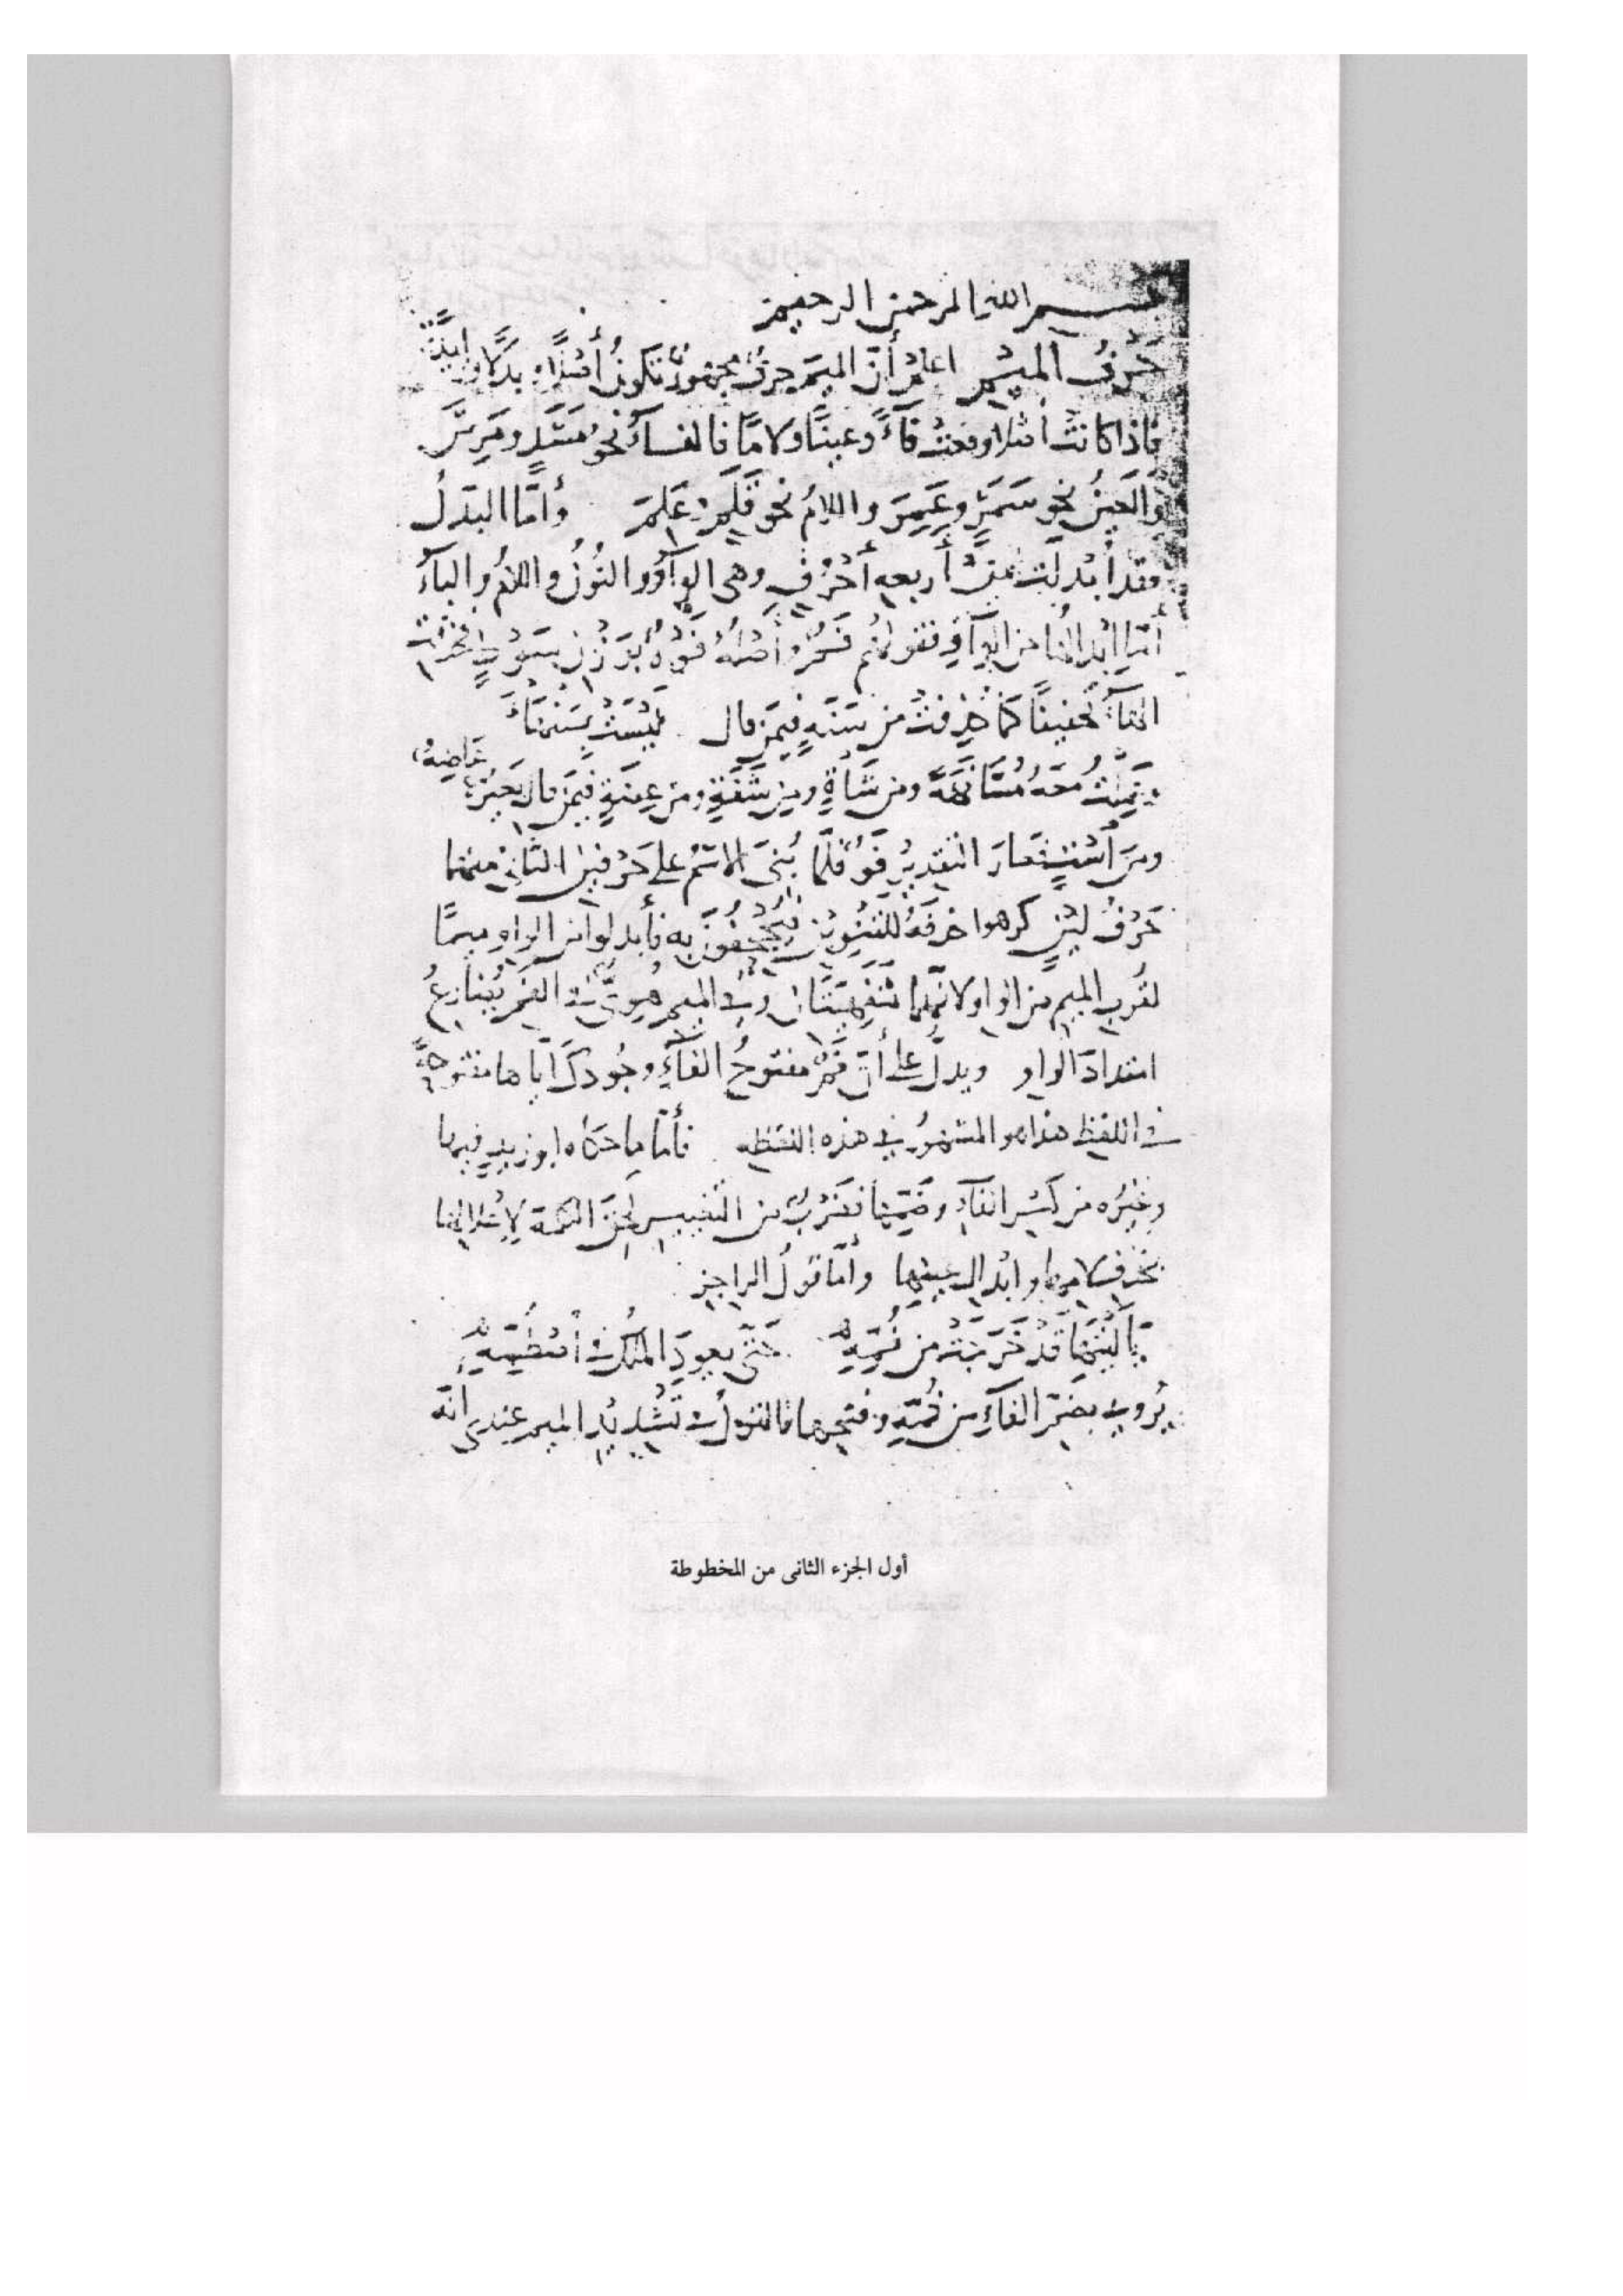 بسم الله الرحمن الرحيم
حَرفُ الميم اعلم أنّ الميمَ حرفٌ مجهورٌ تكونُ أصْلًا وبدلًا وزايدًا
فاذا كانتْ أصْلا وقعتْ فآءً وعينًا ولامًا فالفآءُ نحو مَسَدٍ ومَرِسَ
والعينُ نحو سَمَرٍ وعَمِرَ واللامُ نحو قَلَمٍ وعَلِمَ وأمّا البدلُ
فقد أُبْدِلَتْ من أربعه أحْرُفٍ وهى الواوُ والنُّونُ واللامُ والبآءُ
أمّا ابْدالُها من الواوِ فقولهُم فَمٌ وأصْلهُ فَوْهٌ بوَزْنِ سَوْطٍ فحُذِفَتِ
الهآءُ تخفيفًا كما حُذِفتْ من سَنَةٍ فيمَن قال لَيْسَتْ بسَنْهآءَ
وعَمِلْتُ معه مُسَانَهَةً ومن شَاةٍ ومن شَفَةٍ ومن عِضَةٍ فيمَن قال بعيرٌ عَاضِهٌ
ومن اسْتٍ فصار التقديرُ فَوٌ فلمّا بُنىَ الاسْمُ على حَرْفينِ الثانى منهما
حَرْفُ لينٍ كرهوا حذفَهُ للتنوينِ فيُجْحِفُونَ به فأبدلوا من الواوِ ميمًا
لقُربِ الميمِ من الواو ولأنّهما شَفَهِيّتَانِ وفى الميم هُوِىٌّ فى الفَمِ يُضارِعُ
امتدادَ الواوِ ويدلُّ على أنّ فَمٌ مفتوحُ الفآءِ وجُودكَ ايّاها مفتوحةً
فى اللفظ هذا هو المشهورُ فى هذه اللفظه فأمّا ما حكاه ابو زيدٍ فيها
وغيرُه من كَسْرِ الفآءِ وضَمّها فضَرْبٌ من التغييرِ لحقَ الكلمة لإعْلالِها
بحذفِ لامِها وابْدالِ عينِها وأمّا قولُ الراجزِ
يَا لَيْتَهَا قَدْ خَرَجَتْ من فُمِّهِ حَتّى يعودَ المُلْكُ فى أُسْطُمِّهِ
يُروى بضمّ الفآءِ من فُمِّهِ وفتحِها فالقولُ فى تَشْديدِ الميم عندى انّه
أول الجزء الثانى من المخطوطة